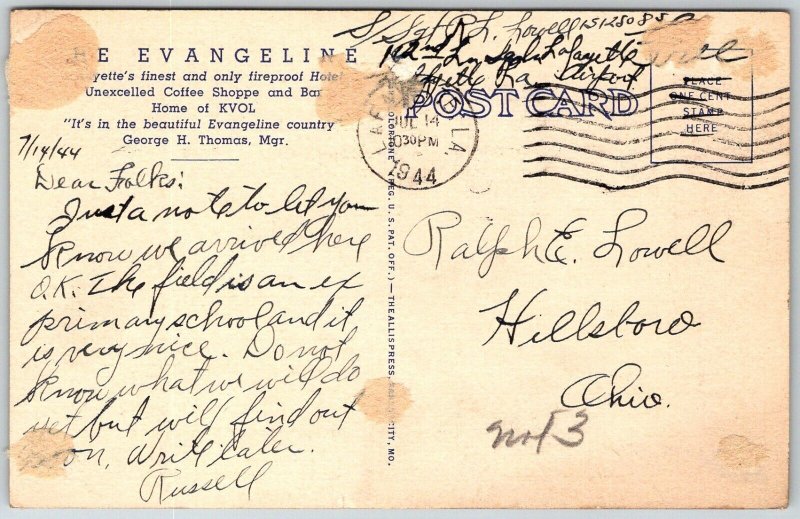 THE EVANGELINE
Lafayette's finest and only fireproof Hotel
Unexcelled Coffee Shoppe and Bar
Home of KVOL
"It's in the beautiful Evangeline country"
George H. Thomas, Mgr.
S/Sgt R. L. Lowell 15125085
Lafayette
Lafayette La. Airport
Free
POST CARD
PLACE
ONE CENT
STAMP
HERE
LAFAYETTE, LA.
JUL 14
30PM
1944
7/14/44
Dear Folks:
Just a note to let you
know we arrived here
O.K. The field is an ex
primary school and it
is very nice. Do not
know what we will do
yet but will find out
on, Write later.
Russell
COLORTONE (REG. U. S. PAT. OFF.)—THE ALLIS PRESS, CITY, MO.
Ralph E. Lowell
Hillsboro
Ohio.
no 3